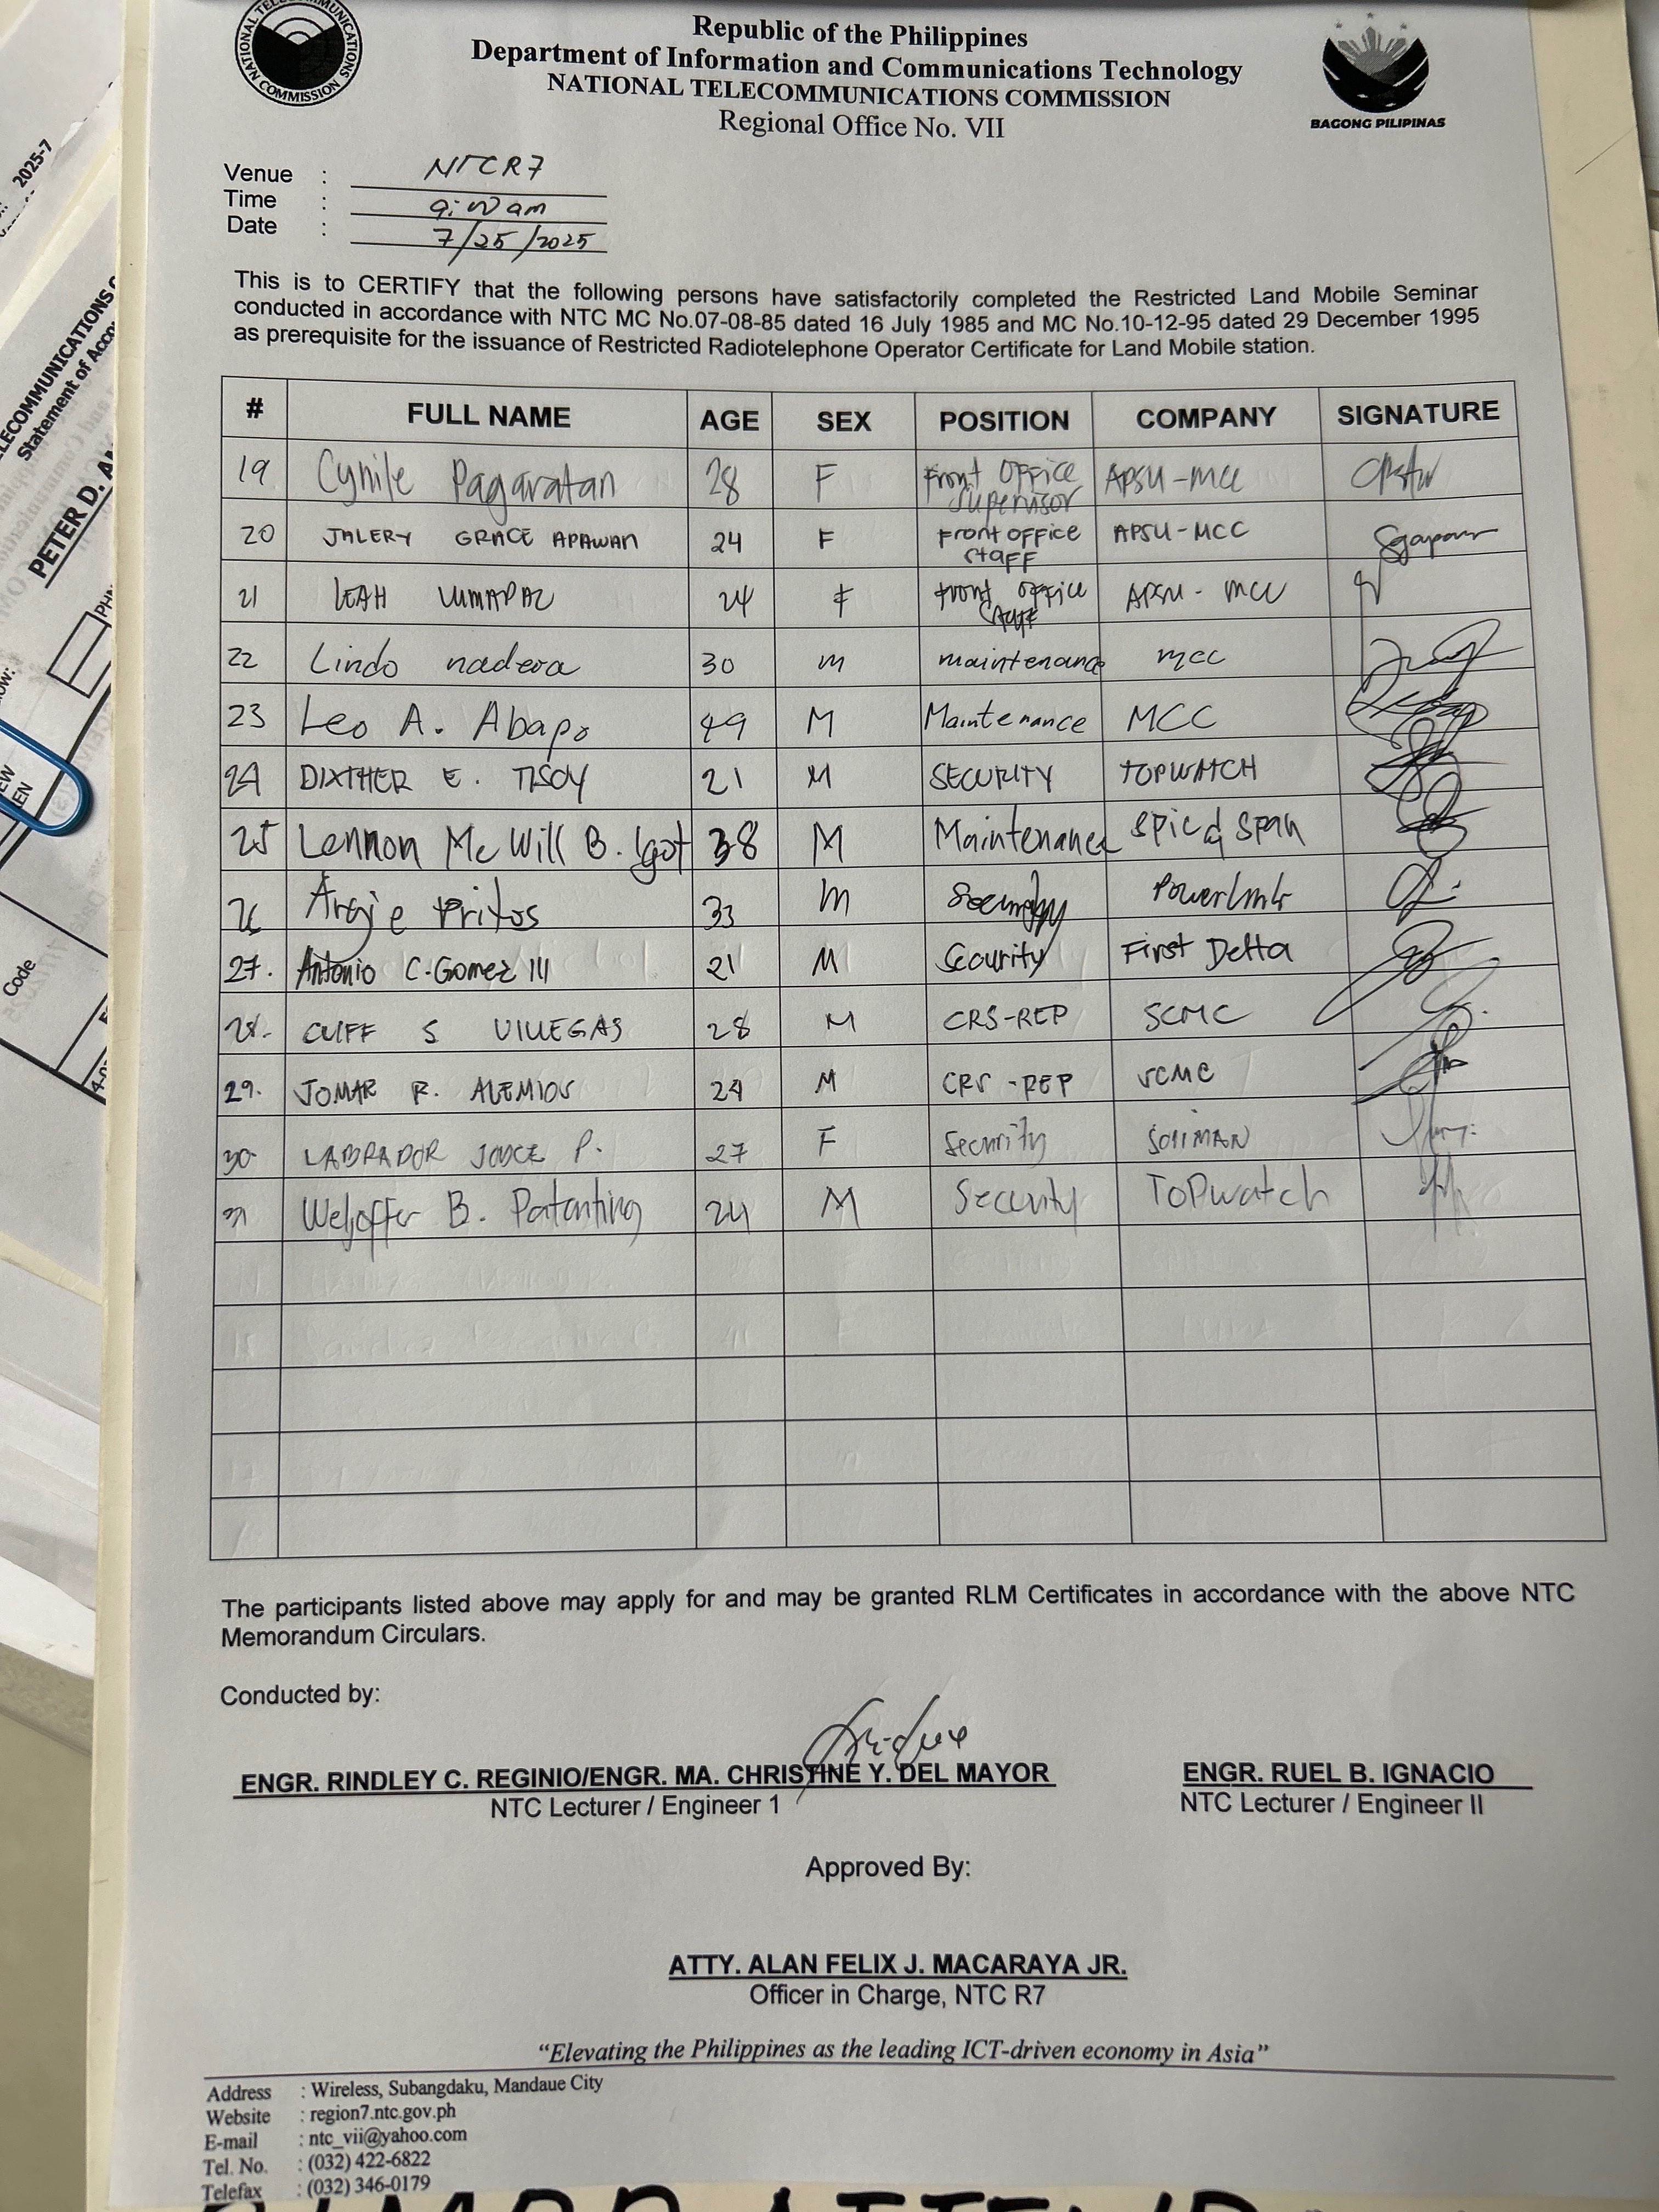 NATIONAL TELECOMMUNICATIONS COMMISSION
Republic of the Philippines
Department of Information and Communications Technology
NATIONAL TELECOMMUNICATIONS COMMISSION
Regional Office No. VII
BAGONG PILIPINAS
Venue : NTCR7
Time : 9:00 am
Date : 7/25/2025
This is to CERTIFY that the following persons have satisfactorily completed the Restricted Land Mobile Seminar
conducted in accordance with NTC MC No.07-08-85 dated 16 July 1985 and MC No.10-12-95 dated 29 December 1995
as prerequisite for the issuance of Restricted Radiotelephone Operator Certificate for Land Mobile station.
# FULL NAME AGE SEX POSITION COMPANY SIGNATURE
19 Cynile Pagaratan 28 F Front Office Supervisor APSU-MCC
20 JALERY GRACE APAWAN 24 F Front office staff APSU-MCC
21 LEAH LUMAPAC 24 F Front office staff APSU-MCC
22 Lindo nadera 30 m maintenance mcc
23 Leo A. Abapo 49 M Maintenance MCC
24 DIXTHER E. TISOY 21 M SECURITY TOPWATCH
25 Lennon Mc Will B. Igot 38 M Maintenance Spic & Span
26 Argie Pritos 33 M Security
27. Antonio C. Gomez III 21 M Security First Delta
28. CLIFF S VILLEGAS 28 M CRS-REP SCMC
29. JOMAR R. ALEMIOS 24 M CRS-REP SCMC
30 LABRADOR JOYCE P. 27 F Security SOLIMAN
31 Weljoffer B. Patanting 24 M Security Topwatch
The participants listed above may apply for and may be granted RLM Certificates in accordance with the above NTC
Memorandum Circulars.
Conducted by:
ENGR. RINDLEY C. REGINIO/ENGR. MA. CHRISTINE Y. DEL MAYOR
NTC Lecturer / Engineer 1
ENGR. RUEL B. IGNACIO
NTC Lecturer / Engineer II
Approved By:
ATTY. ALAN FELIX J. MACARAYA JR.
Officer in Charge, NTC R7
“Elevating the Philippines as the leading ICT-driven economy in Asia”
Address : Wireless, Subangdaku, Mandaue City
Website : region7.ntc.gov.ph
E-mail : ntc_vii@yahoo.com
Tel. No. : (032) 422-6822
Telefax : (032) 346-0179
2025-7
Statement of Acco
PETER D.
Code